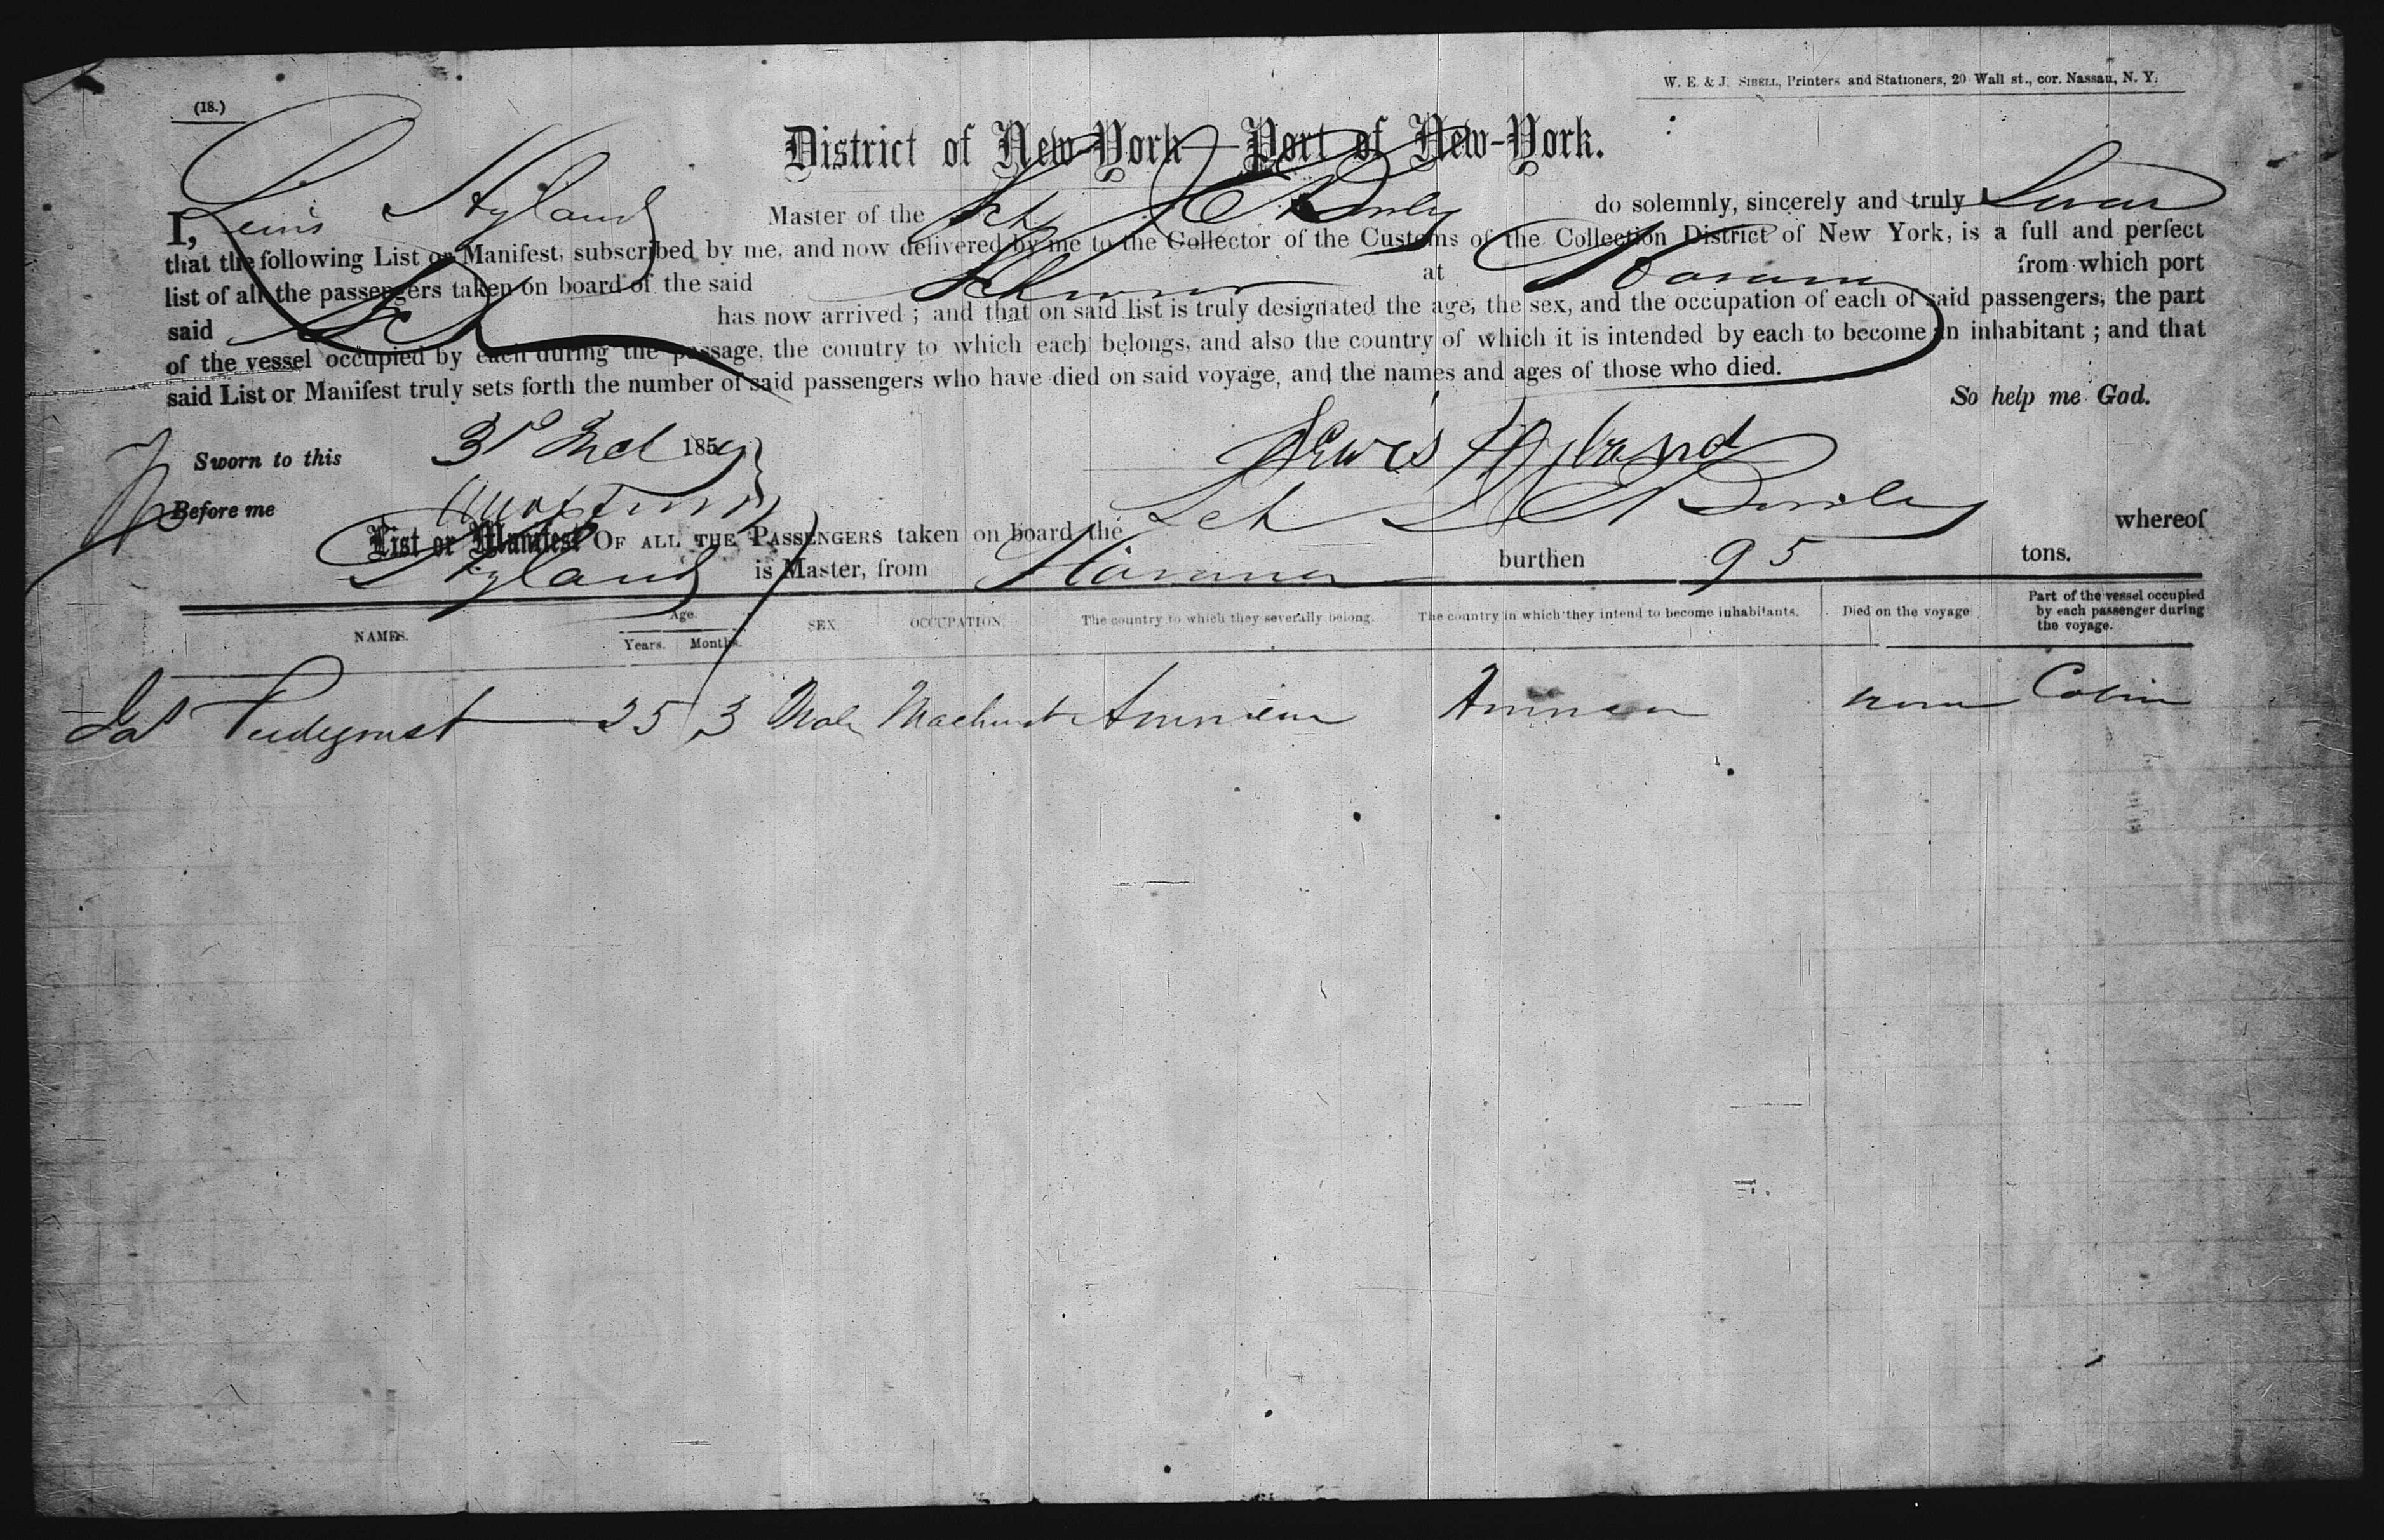 W. E. & J. SIBELL, Printers and Stationers, 20 Wall st., cor. Nassau, N. Y.
(18.)
District of New-York—Port of New-York.
I, Lewis Hyland Master of the Sch do solemnly, sincerely and truly Swear
that the following List or Manifest, subscribed by me, and now delivered by me to the Collector of the Customs of the Collection District of New York, is a full and perfect
list of all the passengers taken on board of the said Schooner at Havana from which port
said Sch has now arrived ; and that on said list is truly designated the age, the sex, and the occupation of each of said passengers, the part
of the vessel occupied by each during the passage, the country to which each belongs, and also the country of which it is intended by each to become an inhabitant ; and that
said List or Manifest truly sets forth the number of said passengers who have died on said voyage, and the names and ages of those who died.
So help me God.
Sworn to this 3 1859
Lewis Hyland
Before me
List or Manifest OF ALL THE PASSENGERS taken on board the Sch whereof
Hyland is Master, from Havana burthen 95 tons.
NAMES. Age. Years. Months. SEX. OCCUPATION. The country to which they severally belong. The country in which they intend to become inhabitants. Died on the voyage Part of the vessel occupied by each passenger during the voyage.
Jas 25 3 Male American American none Cabin